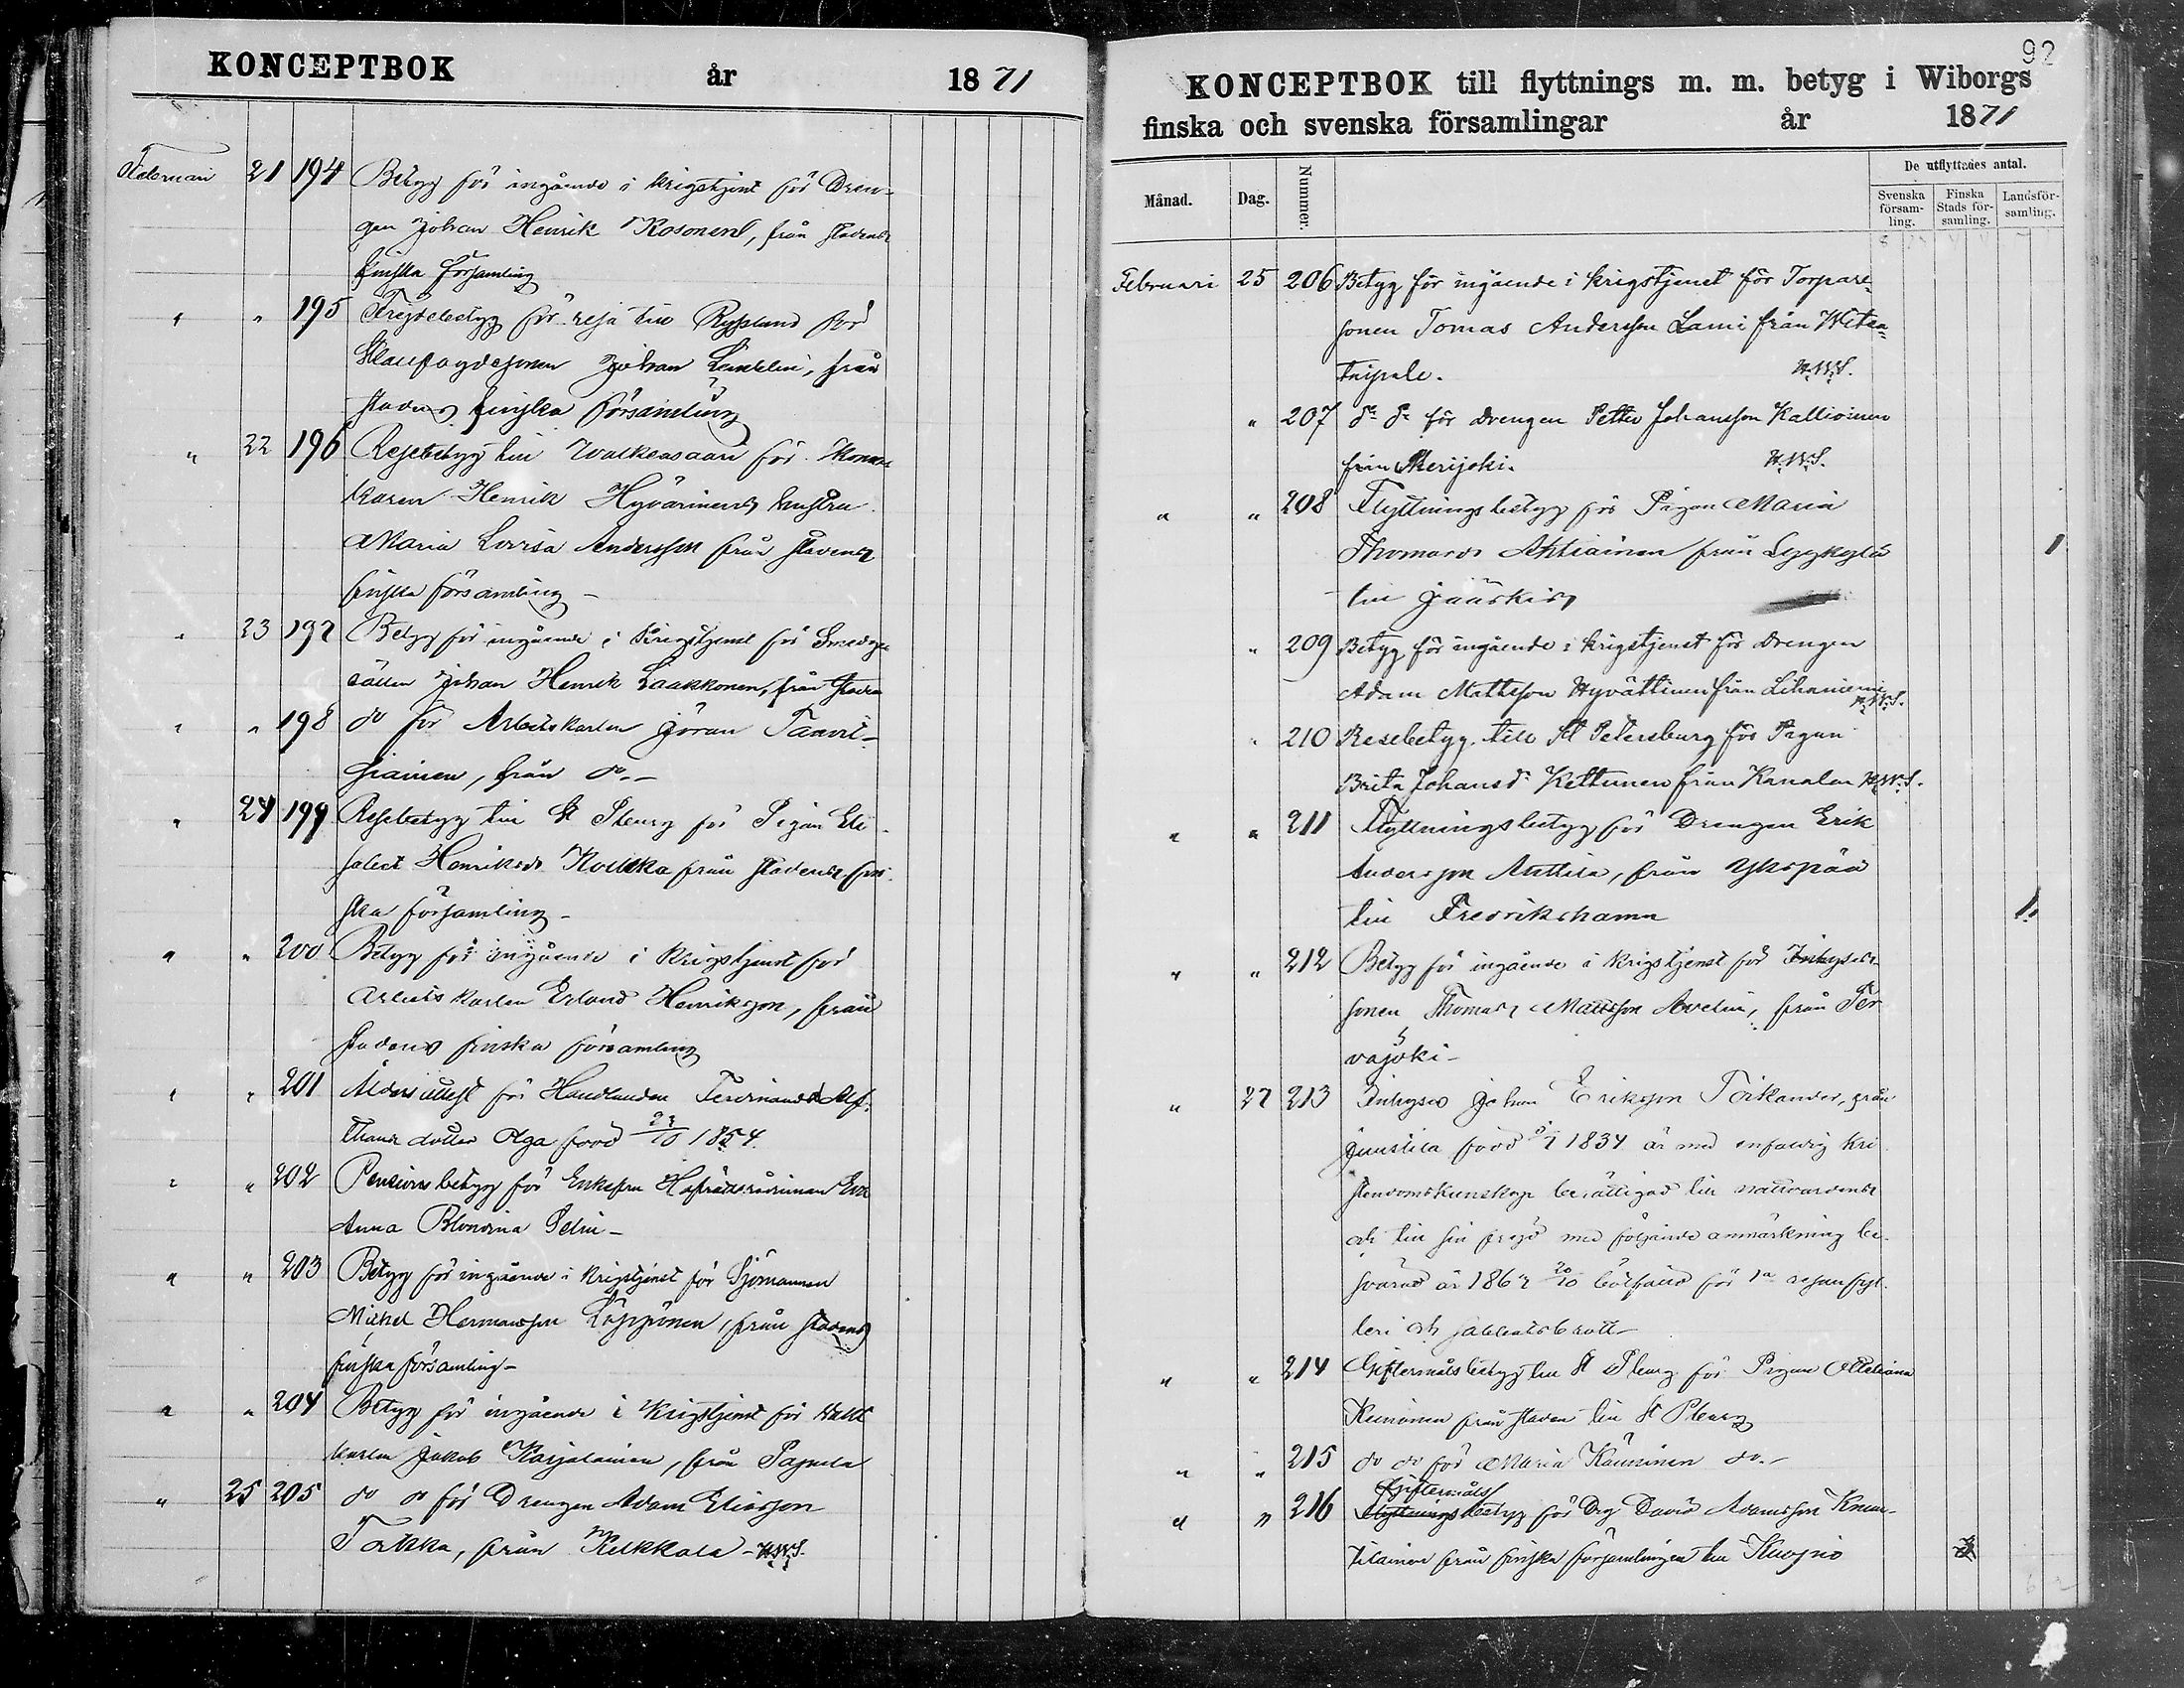 KONCEPTBOK år 1871
Februari 21 194 Betyg för ingående i krigstjenst för Dren-
gen Johan Henrik Rosonen, från stadens
finska församling
" " 195 Frejdebetyg för resa till Ryssland för
Johan från
stadens finska församling
" 22 196 Resebetyg till Walkeasaari för
karen Henrik Hyvärinens hustru
Maria Lovisa Andersson från stadens
finska församling -
" 23 197 Betyg för ingående i krigstjenst för Smedsge-
sällen Johan Henrik Laakkonen, från staden
" " 198 do för Arbetskarlen Göran Tanvit-
siainen, från do -
" 24 199 Resebetyg till St Pburg för Pigan Eli-
sabet Henriksdr från stadens fin-
ska församling -
" " 200 Betyg för ingående i krigstjenst för
arbetskarlen Erland Henriksson, från
stadens finska församling
" " 201 Åldersattest för Handlanden Ferdinand Alf-
thans dotter Olga född 23/10 1854.
" " 202 Pensionsbetyg för Enkefru
Anna Blondina -
" " 203 Betyg för ingående i krigstjenst för Sjömannen
Mickel Hermansson Löppönen, från stadens
finska församling -
" " 204 Betyg för ingående i krigstjenst för
karlen Jakob Karjalainen, från Papula
" 25 205 do do för Drengen Adam Eliasson
Torkka, från Kelkkala - H.W.S.
92
KONCEPTBOK till flyttnings m. m. betyg i Wiborgs
finska och svenska församlingar år 1871
Månad. Dag. Nummer. De utflyttades antal.
Svenska församling. Finska Stads församling. Landsförsamling.
Februari 25 206 Betyg för ingående i krigstjenst för Torpare-
sonen Tomas Andersson Lami från Wiksa-
taipale. H.W.S.
" 207 do do för drengen Petter Johansson Kallioinen
från Merijoki. H.W.S.
" " 208 Flyttningsbetyg för Pigan Maria
Thomasdr Ahtiainen från Lyykylä 1
till Jääskis
" 209 Betyg för ingående i krigstjenst för drengen
Adam Mattsson Hyvättinen från Lihaniemi H.W.S.
" 210 Resebetyg till St Petersburg för Pigan
Brita Johansdr Kettunen från Kanalen H.W.S.
" " 211 Flyttningsbetyg för Drengen Erik
Andersson Anttila, från Ykspää
till Fredrikshamn 1.
" " 212 Betyg för ingående i krigstjenst för Inhyses-
sonen Thomas Mattsson Avelin, från Ter-
vajoki -
" 27 213 Inhyses Johan Eriksson Torkander, från
Juustila född 1834 är med enfaldig kri-
stendomskunskap berättigad till nattvardens
och till sin frejd med följande anmärkning be-
svärad år 1867 20/10 bötfälld för 1a resan fyl-
leri och sabbatsbrott -
" " 214 Giftermålsbetyg till St Pburg för Pigan
från staden till St Pburg
" " 215 do do för Maria do -
Giftermåls
" " 216 Flyttningsbetyg för Drg David Adamsson
från finska församlingen till Kuopio